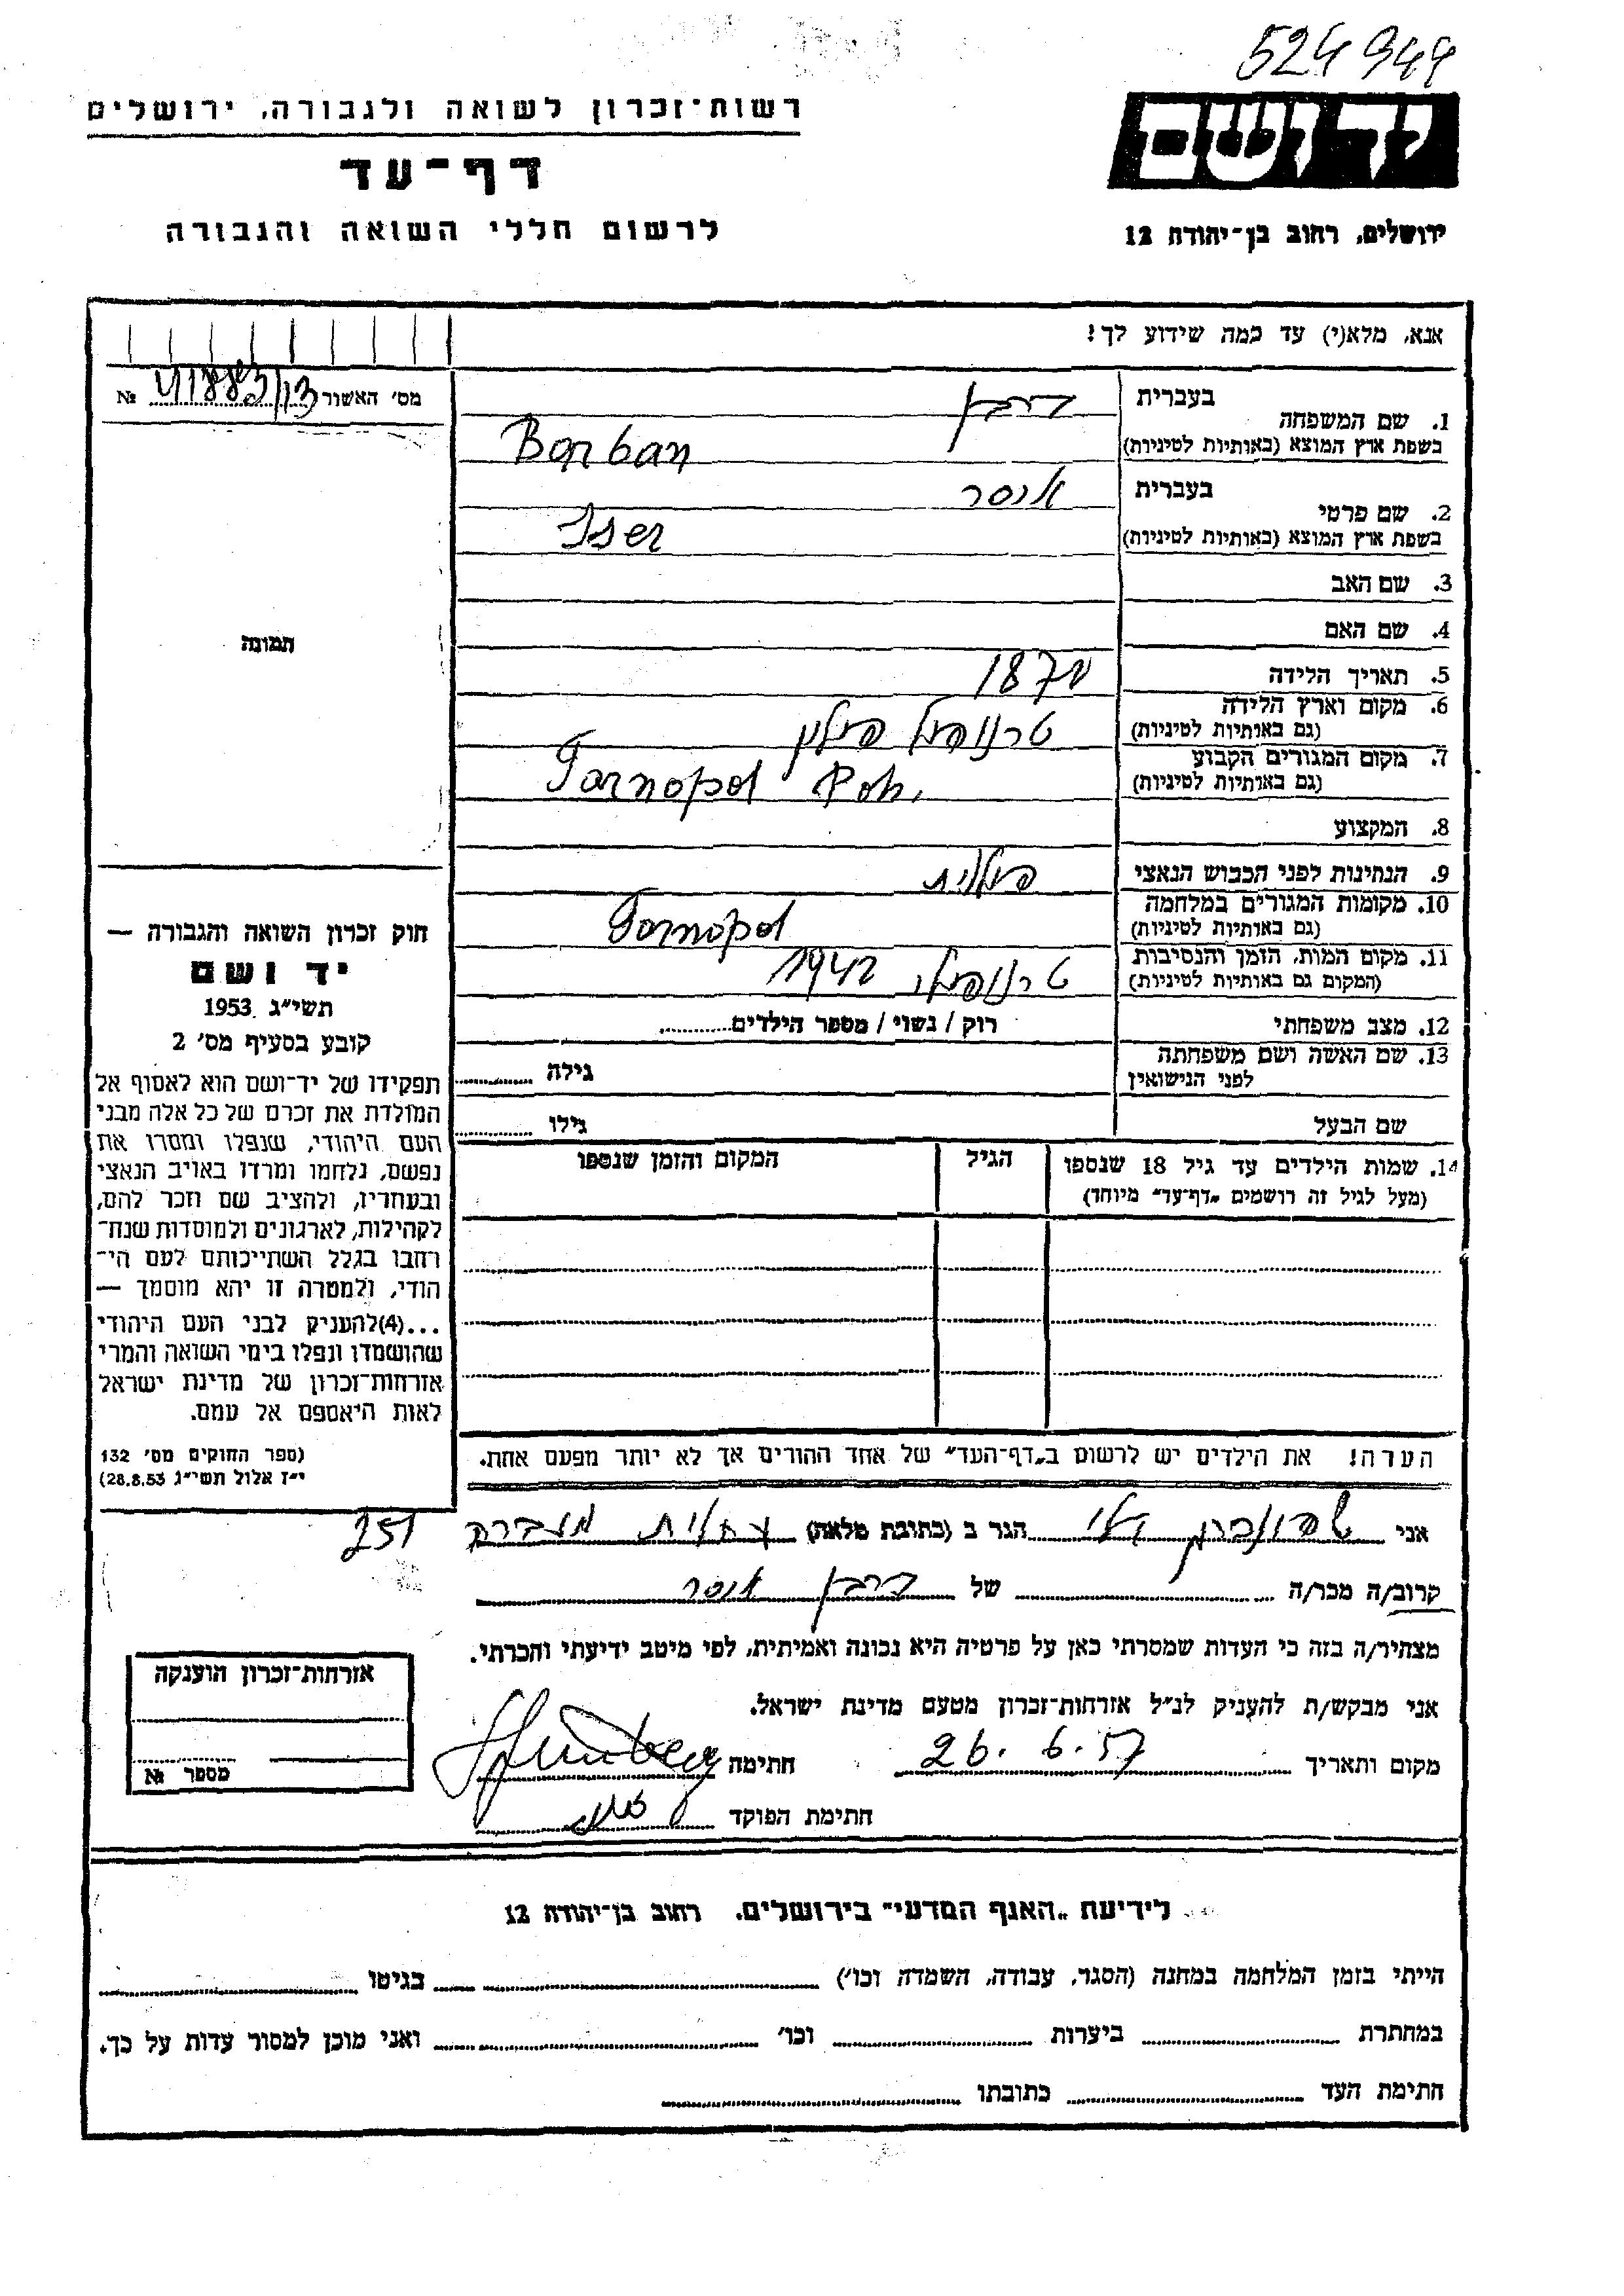 524944
רשות־זכרון לשואה ולגבורה, ירושלים
דף־עד
לרשום חללי השואה והגבורה
יד ושם
ירושלים, רחוב בן־יהודה 12
אנא, מלא(י) עד כמה שידוע לך!
מס׳ האשור №
1. שם המשפחה
בעברית
בשפת ארץ המוצא (באותיות לטיניות) Borban
2. שם פרטי
בעברית איסר
בשפת ארץ המוצא (באותיות לטיניות) Iser
3. שם האב
4. שם האם
5. תאריך הלידה 1870
6. מקום וארץ הלידה טרנופול פולין
(גם באותיות לטיניות)
7. מקום המגורים הקבוע Tarnopol Pol.
(גם באותיות לטיניות)
8. המקצוע
9. הנתינות לפני הכבוש הנאצי פולנית
10. מקומות המגורים במלחמה Tarnopol
(גם באותיות לטיניות)
11. מקום המות, הזמן והנסיבות טרנופול 1942
(המקום גם באותיות לטיניות)
12. מצב משפחתי רוק / נשוי / מספר הילדים
13. שם האשה ושם משפחתה
לפני הנישואין גילה
שם הבעל גילו
14. שמות הילדים עד גיל 18 שנספו הגיל המקום והזמן שנספו
(מעל לגיל זה רושמים „דף־עד״ מיוחד)
הערה! את הילדים יש לרשום ב„דף־העד״ של אחד ההורים אך לא יותר מפעם אחת.
תמונה
חוק זכרון השואה והגבורה —
יד ושם
תשי״ג 1953
קובע בסעיף מס׳ 2
תפקידו של יד־ושם הוא לאסוף אל
המולדת את זכרם של כל אלה מבני
העם היהודי, שנפלו ומסרו את
נפשם, נלחמו ומרדו באויב הנאצי
ובעוזריו, ולהציב שם וזכר להם,
לקהילות, לארגונים ולמוסדות שנח־
רבו בגלל השתייכותם לעם הי־
הודי, ולמטרה זו יהא מוסמך —
...(4)להעניק לבני העם היהודי
שהושמדו ונפלו בימי השואה והמרי
אזרחות־זכרון של מדינת ישראל
לאות היאספם אל עמם.
(ספר החוקים מס׳ 132
י״ז אלול תשי״ג 28.8.53)
אני הגר ב (כתובת מלאה) 251
קרוב/ה מכר/ה של איסר
מצהיר/ה בזה כי העדות שמסרתי כאן על פרטיה היא נכונה ואמיתית, לפי מיטב ידיעתי והכרתי.
אני מבקש/ת להעניק לנ״ל אזרחות־זכרון מטעם מדינת ישראל.
מקום ותאריך 26.6.57 חתימה
חתימת הפוקד
אזרחות־זכרון הוענקה
מספר №
לידיעת „האגף המדעי״ בירושלים, רחוב בן־יהודה 12
הייתי בזמן המלחמה במחנה (הסגר, עבודה, השמדה וכו׳) בגיטו
במחתרת ביערות וכו׳ ואני מוכן למסור עדות על כך.
חתימת העד כתובתו